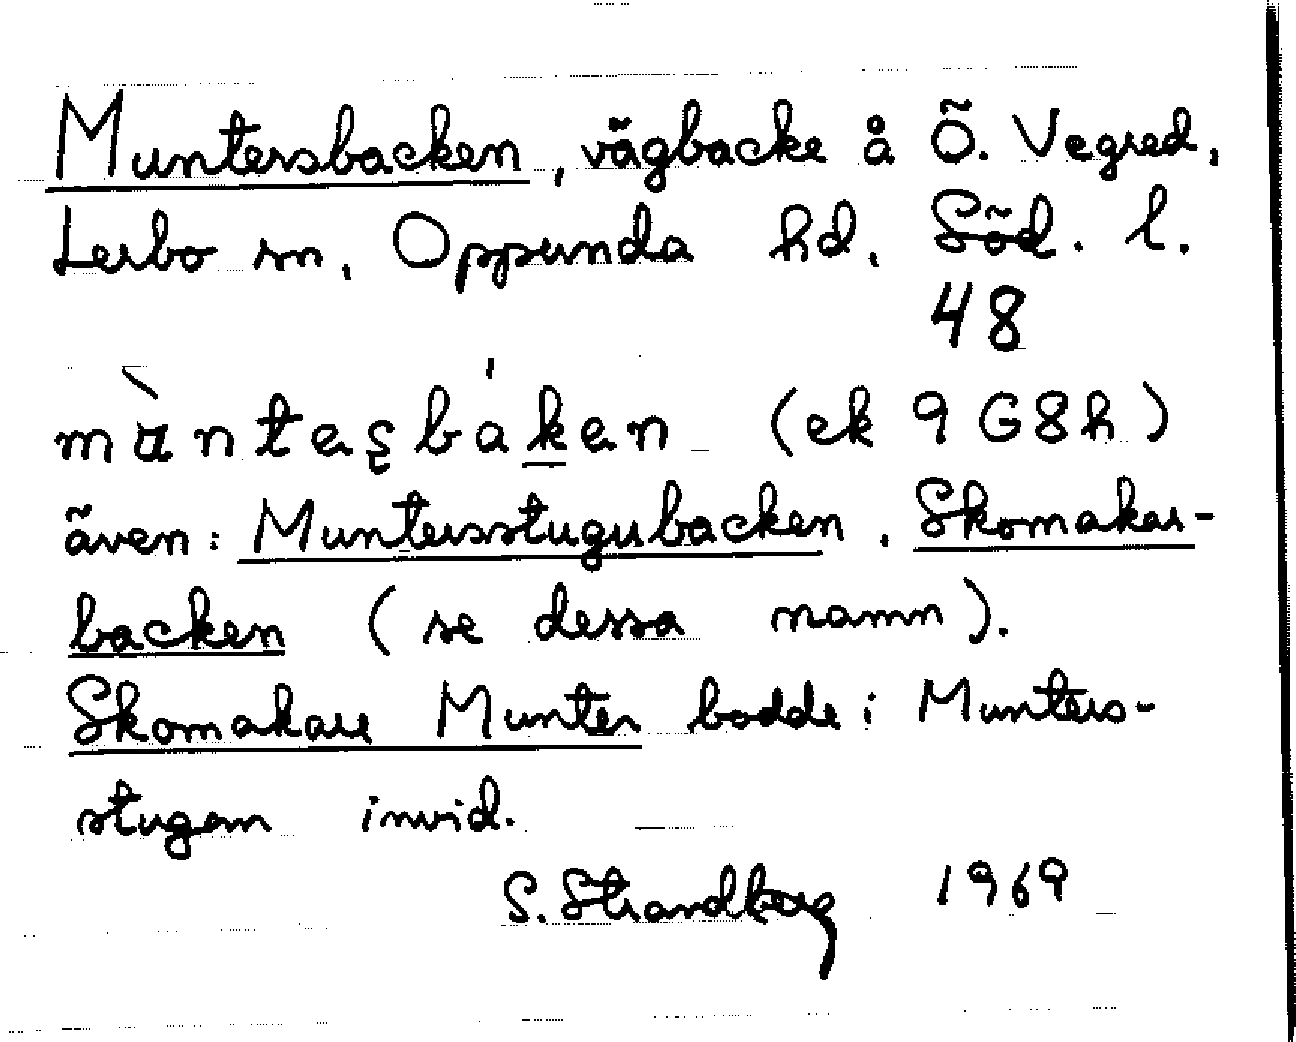 Muntersbacken, vägbacke å Ö. Vegred,
Lerbo sn, Oppunda hd, Söd. l.
48
(ek 9 G8h)
även: Muntersstugubacken, Skomakar-
backen (se dessa namn).
Skomakare Munter bodde i Munters-
stugan invid.
S. Strandberg 1969